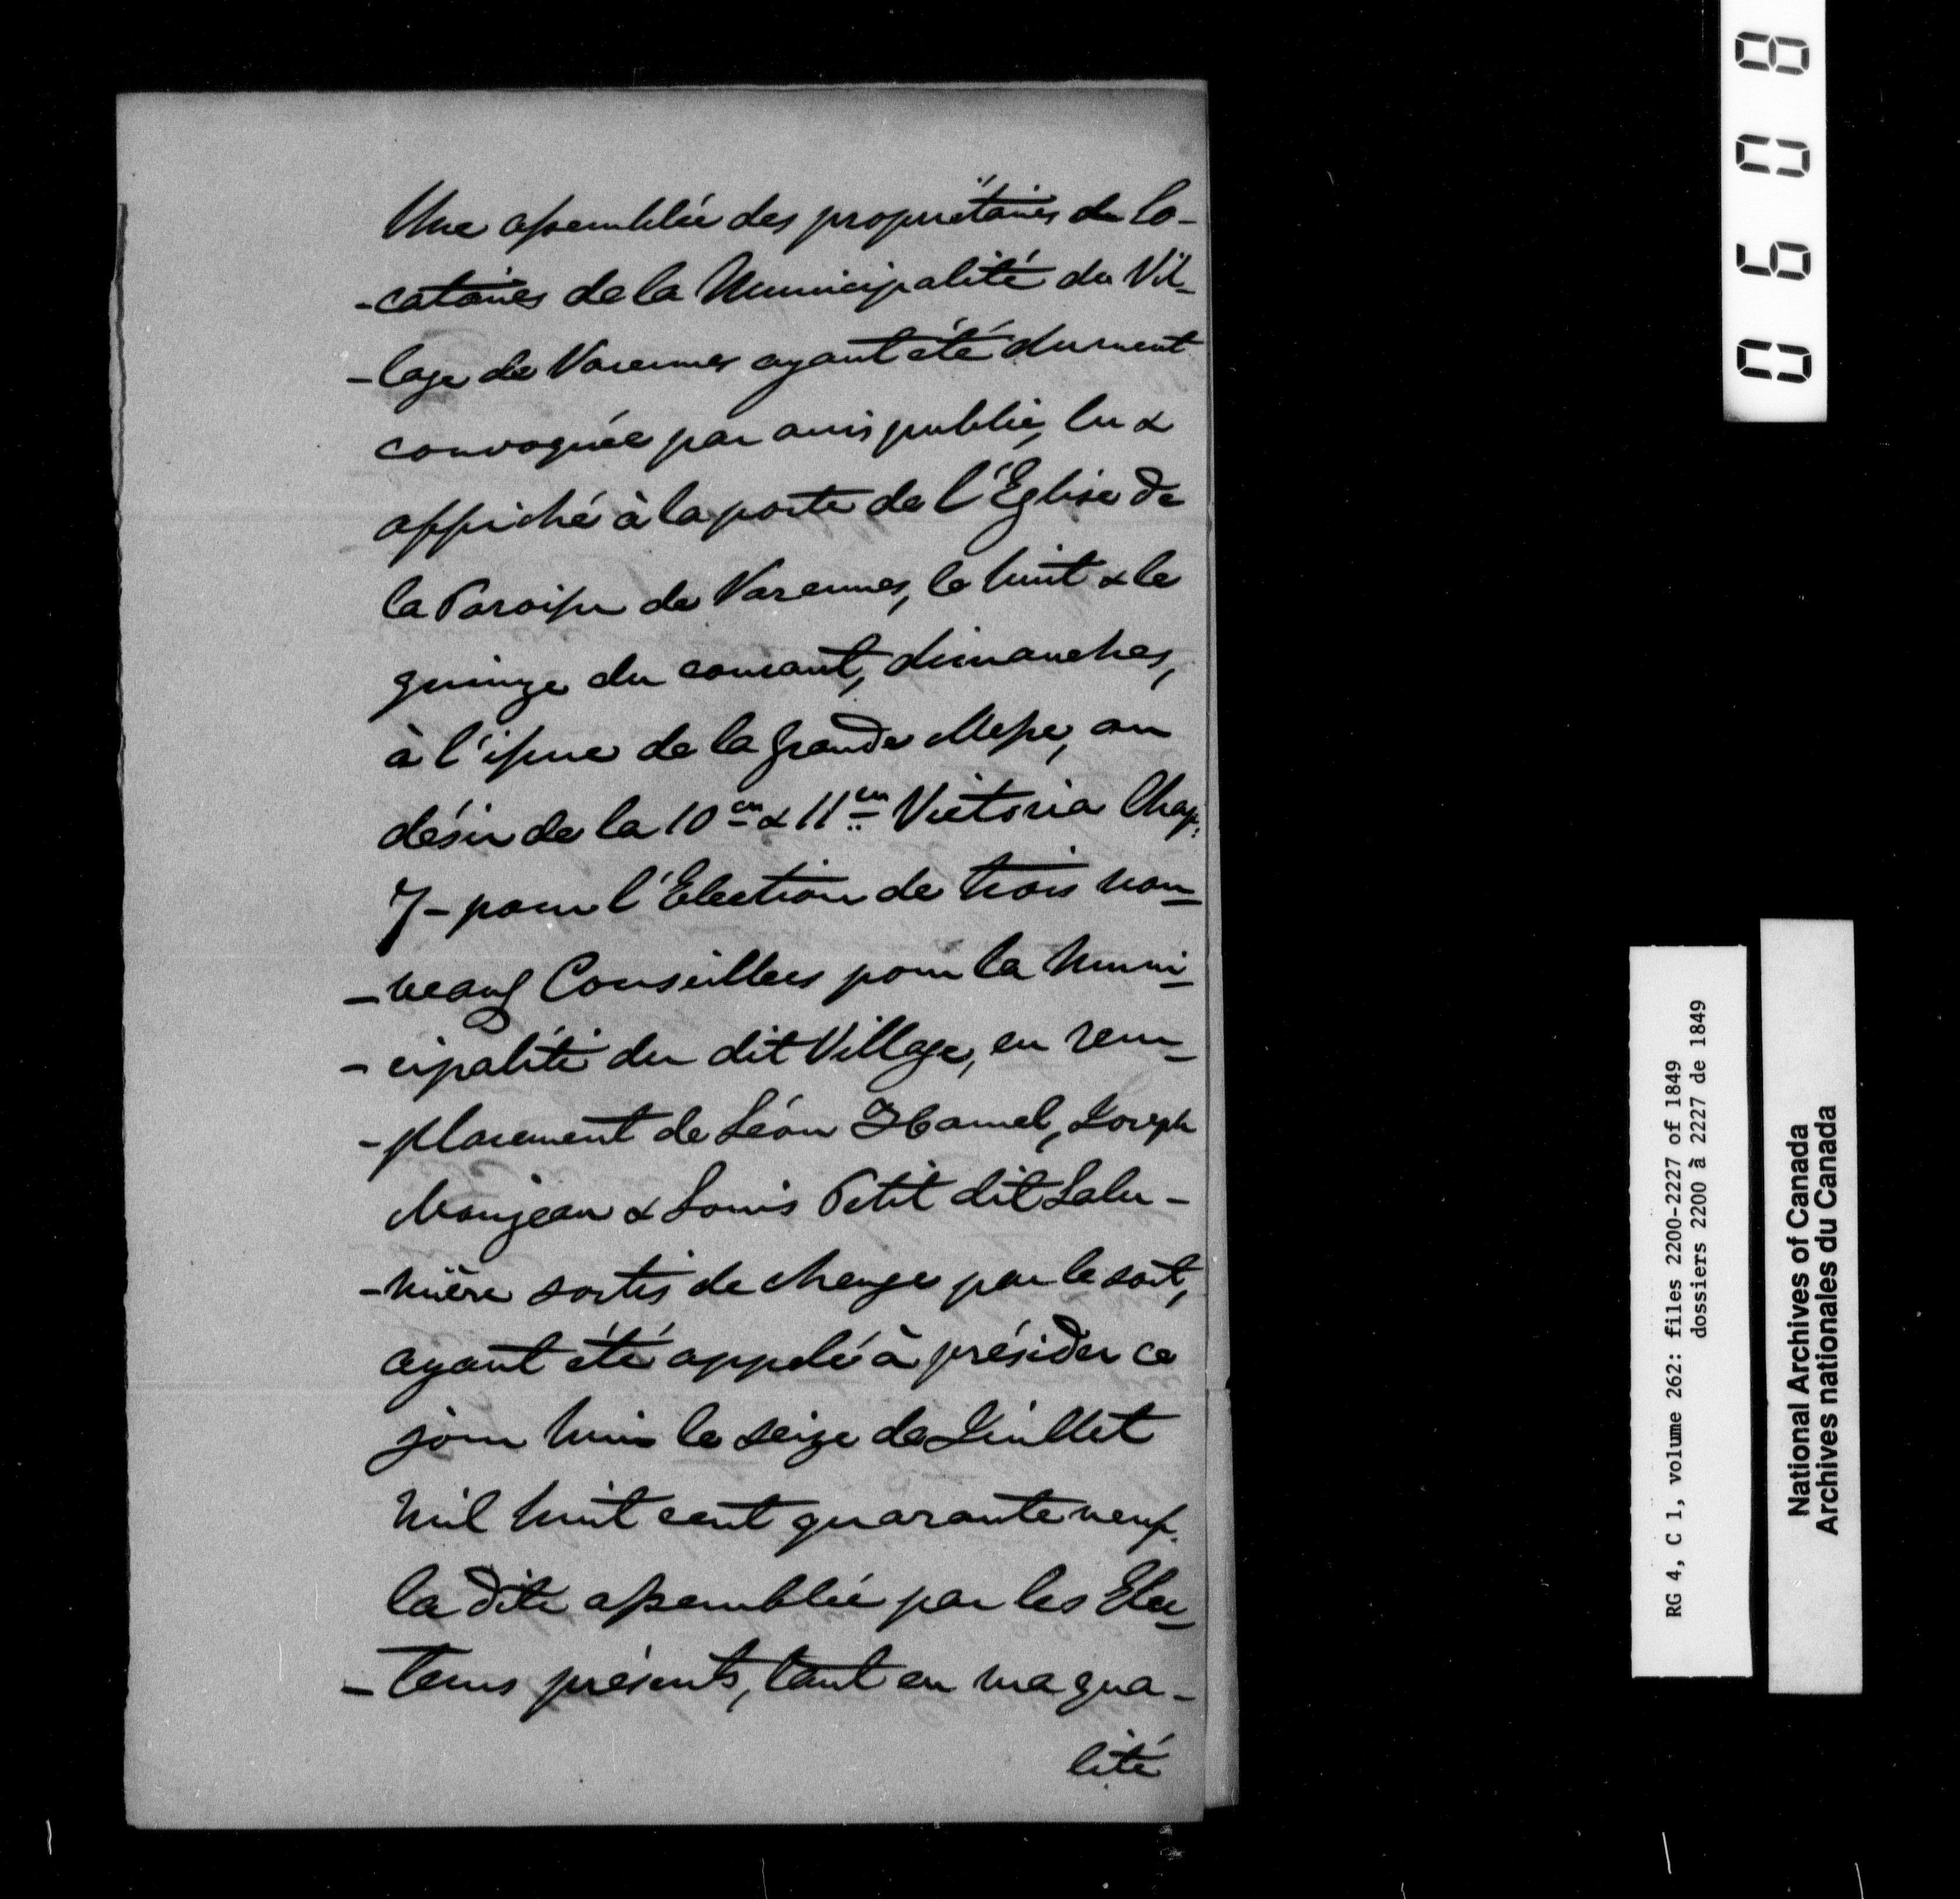 Une assemblée des propriétaires du lo-
-cataires de la Municipalité du Vil-
-lage de Varennes ayant été dument
convoquée par avis public, lu &
affiché à la porte de l'Eglise de
la Paroisse de Varennes, le huit & le
quinze du courant, dimanches,
à l'issue de la grande Messe, au
désir de la 10en & 11en Victoria Chap:
7 - pour l'Election de trois nou-
-veaux Conseillers pour la Muni-
-cipalité du dit Village, en rem-
-placement de Léon Hamel, Joseph
Monjeau & Louis Petit dit Lalu-
-mière sortis de charge par le sort,
ayant été appelé à présider ce
jour huis le seize de Juillet
mil huit cent quarante neuf.
la dite assemblée par les Elec-
-teurs présents, tant en ma qua-
lité
0608
RG 4, C 1, volume 262: files 2200-2227 of 1849
dossiers 2200 à 2227 de 1849
National Archives of Canada
Archives nationales du Canada